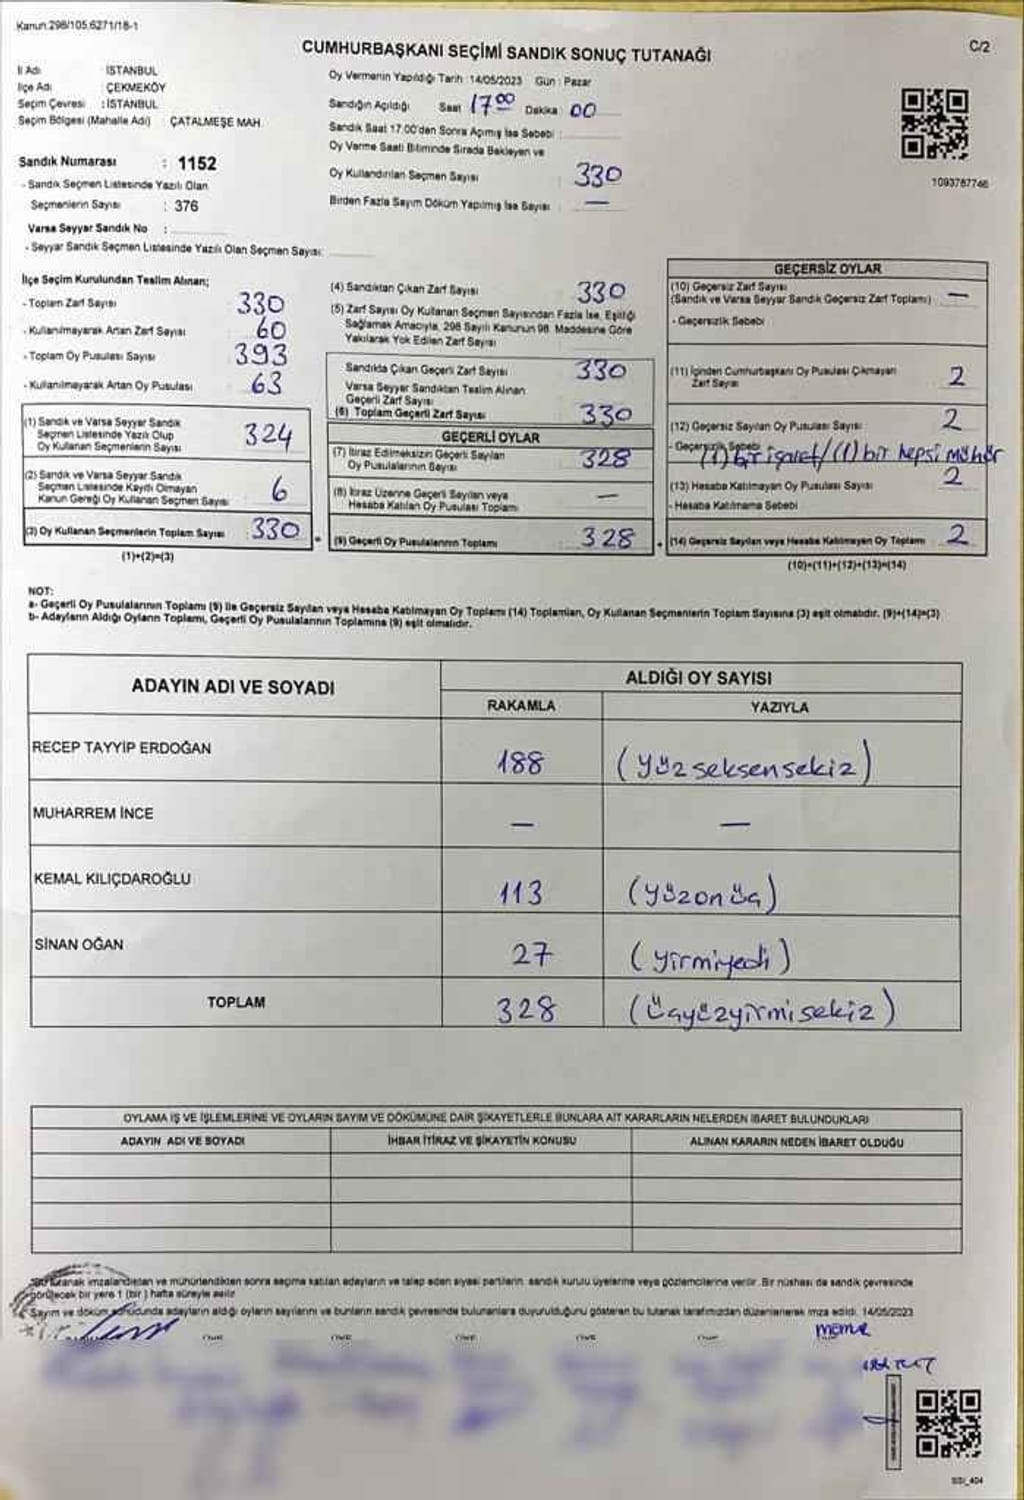 Kanun:298/105,6271/18-1
C/2
CUMHURBAŞKANI SEÇİMİ SANDIK SONUÇ TUTANAĞI
İl Adı : İSTANBUL
İlçe Adı : ÇEKMEKÖY
Seçim Çevresi : İSTANBUL
Seçim Bölgesi (Mahalle Adı) : ÇATALMEŞE MAH.
Sandık Numarası : 1152
- Sandık Seçmen Listesinde Yazılı Olan
Seçmenlerin Sayısı : 376
Varsa Seyyar Sandık No :
- Seyyar Sandık Seçmen Listesinde Yazılı Olan Seçmen Sayısı:
Oy Vermenin Yapıldığı Tarih :14/05/2023 Gün : Pazar
Sandığın Açıldığı Saat 17:00 Dakika 00
Sandık Saat 17:00'den Sonra Açılmış İse Sebebi :
Oy Verme Saati Bitiminde Sırada Bekleyen ve
Oy Kullandırılan Seçmen Sayısı : 330
Birden Fazla Sayım Döküm Yapılmış İse Sayısı : —
1093787746
İlçe Seçim Kurulundan Teslim Alınan;
- Toplam Zarf Sayısı 330
- Kullanılmayarak Artan Zarf Sayısı 60
- Toplam Oy Pusulası Sayısı 393
- Kullanılmayarak Artan Oy Pusulası 63
(1) Sandık ve Varsa Seyyar Sandık
Seçmen Listesinde Yazılı Olup
Oy Kullanan Seçmenlerin Sayısı 324
(2) Sandık ve Varsa Seyyar Sandık
Seçmen Listesinde Kayıtlı Olmayan
Kanun Gereği Oy Kullanan Seçmen Sayısı 6
(3) Oy Kullanan Seçmenlerin Toplam Sayısı : 330
(1)+(2)=(3)
(4) Sandıktan Çıkan Zarf Sayısı 330
(5) Zarf Sayısı Oy Kullanan Seçmen Sayısından Fazla İse, Eşitliği
Sağlamak Amacıyla, 298 Sayılı Kanunun 98. Maddesine Göre
Yakılarak Yok Edilen Zarf Sayısı
Sandıkta Çıkan Geçerli Zarf Sayısı 330
Varsa Seyyar Sandıktan Teslim Alınan
Geçerli Zarf Sayısı
(6) Toplam Geçerli Zarf Sayısı 330
GEÇERLİ OYLAR
(7) İtiraz Edilmeksizin Geçerli Sayılan
Oy Pusulalarının Sayısı 328
(8) İtiraz Üzerine Geçerli Sayılan veya
Hesaba Katılan Oy Pusulası Toplamı —
(9) Geçerli Oy Pusulalarının Toplamı 328
GEÇERSİZ OYLAR
(10) Geçersiz Zarf Sayısı
(Sandık ve Varsa Seyyar Sandık Geçersiz Zarf Toplamı) —
- Geçersizlik Sebebi
(11) İçinden Cumhurbaşkanı Oy Pusulası Çıkmayan
Zarf Sayısı 2
(12) Geçersiz Sayılan Oy Pusulası Sayısı 2
- Geçersizlik Sebebi
(1) bir işaret/(1) bir hepsi mühür
(13) Hesaba Katılmayan Oy Pusulası Sayısı 2
- Hesaba Katılmama Sebebi
(14) Geçersiz Sayılan veya Hesaba Katılmayan Oy Toplamı 2
(10)+(11)+(12)+(13)=(14)
NOT:
a- Geçerli Oy Pusulalarının Toplamı (9) ile Geçersiz Sayılan veya Hesaba Katılmayan Oy Toplamı (14) Toplamları, Oy Kullanan Seçmenlerin Toplam Sayısına (3) eşit olmalıdır. (9)+(14)=(3)
b- Adayların Aldığı Oyların Toplamı, Geçerli Oy Pusulalarının Toplamına (9) eşit olmalıdır.
ADAYIN ADI VE SOYADI ALDIĞI OY SAYISI
RAKAMLA YAZIYLA
RECEP TAYYİP ERDOĞAN 188 (Yüzseksensekiz)
MUHARREM İNCE — —
KEMAL KILIÇDAROĞLU 113 (Yüzonüç)
SİNAN OĞAN 27 (Yirmiyedi)
TOPLAM 328 (Üçyüzyirmisekiz)
OYLAMA İŞ VE İŞLEMLERİNE VE OYLARIN SAYIM VE DÖKÜMÜNE DAİR ŞİKAYETLERLE BUNLARA AİT KARARLARIN NELERDEN İBARET BULUNDUKLARI
ADAYIN ADI VE SOYADI İHBAR İTİRAZ VE ŞİKAYETİN KONUSU ALINAN KARARIN NEDEN İBARET OLDUĞU
tutanak imzalandıktan ve mühürlendikten sonra seçime katılan adayların ve talep eden siyasi partilerin, sandık kurulu üyelerine veya gözlemcilerine verilir. Bir nüshası da sandık çevresinde
görülecek bir yere 1 (bir) hafta süreyle asılır.
Sayım ve döküm sonucunda adayların aldığı oyların sayılarını ve bunların sandık çevresinde bulunanlara duyurulduğunu gösteren bu tutanak tarafımızdan düzenlenerek imza edildi. 14/05/2023
MEMUR
SSI_404